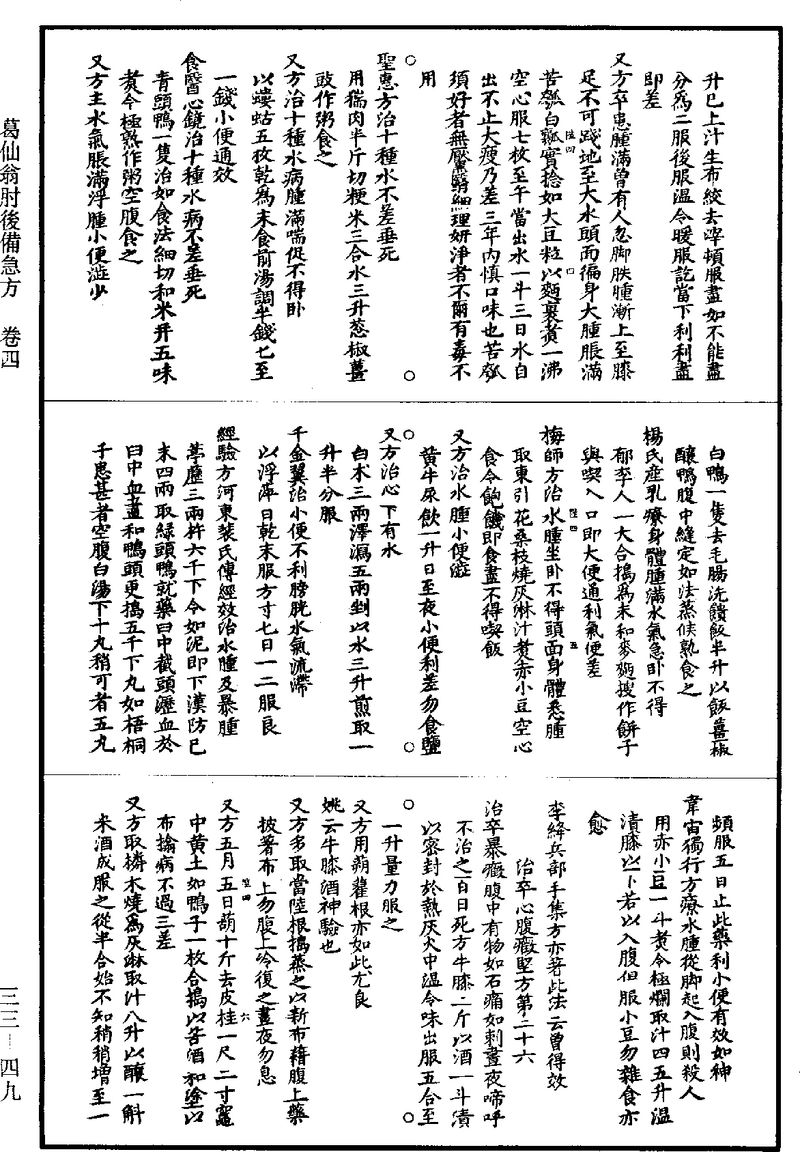 升已上汁生布絞去滓頓服盡如不能盡
分爲二服後服溫令暖服訖當下利利盡
即差
又方卒患腫滿曾有人忽脚趺腫漸上至膝
足不可踐地至大水頭面徧身大腫脹滿
苦瓠白瓤實捻如大豆粒以麵裹煮一沸
空心服七枚至午當出水一斗三日水自
出不止大瘦乃差三年內慎口味也苦瓠
須好者無靨翳細理妍淨者不爾有毒不
用
聖惠方治十種水不差垂死
用猯肉半斤切粳米三合水三升葱椒薑
豉作粥食之
又方治十種水病腫滿喘促不得卧
以螻蛄五枚乾爲末食前湯調半錢匕至
一錢小便通效
食醫心鏡治十種水病不差垂死
青頭鴨一隻治如食法細切和米并五味
煮令極熟作粥空腹食之
又方主水氣脹滿浮腫小便澁少
白鴨一隻去毛腸洗饋飯半升以飯薑椒
釀鴨腹中縫定如法蒸候熟食之
楊氏產乳療身體腫滿水氣急卧不得
郁李人一大合擣爲末和麥麵搜作餅子
與喫入口即大便通利氣便差
梅師方治水腫坐卧不得頭面身體悉腫
取東引花桑枝燒灰淋汁煮赤小豆空心
食令飽饑即食盡不得喫飯
又方治水腫小便澁
黃牛尿飲一升日至夜小便利差勿食鹽
又方治心下有水
白朮三兩澤瀉五兩剉以水三升煎取一
升半分服
千金翼治小便不利膀胱水氣流滯
以浮萍日乾末服方寸匕日一二服良
經驗方河東裴氏傳經效治水腫及暴腫
葶藶三兩杵六千下令如泥即下漢防己
末四兩取綠頭鴨就藥臼中截頭瀝血於
臼中血盡和鴨頭更擣五千下丸如梧桐
子患甚者空腹白湯下十丸稍可者五丸
頻服五日止此藥利小便有效如神
韋宙獨行方療水腫從脚起入腹則殺人
用赤小豆一斗煮令極爛取汁四五升溫
漬膝以下若以入腹但服小豆勿雜食亦
愈
李絳兵部手集方亦著此法云曾得效
治卒心腹癥堅方第二十六
治卒暴癥腹中有物如石痛如刺晝夜啼呼
不治之百日死方牛膝二斤以酒一斗漬
以密封於熱灰火中溫令味出服五合至
一升量力服之
又方用蒴藋根亦如此尤良
姚云牛膝酒神驗也
又方多取當陸根擣蒸之以新布藉腹上藥
披著布上勿腹上冷復之晝夜勿息
又方五月五日葫十斤去皮桂一尺二寸竈
中黃土如鴨子一枚合擣以苦酒和塗以
布揄病不過三差
又方取㯠木燒爲灰淋取汁八升以釀一斛
米酒成服之從半合始不知稍稍增至一
葛仙翁肘後備急方 卷四
三三—四九